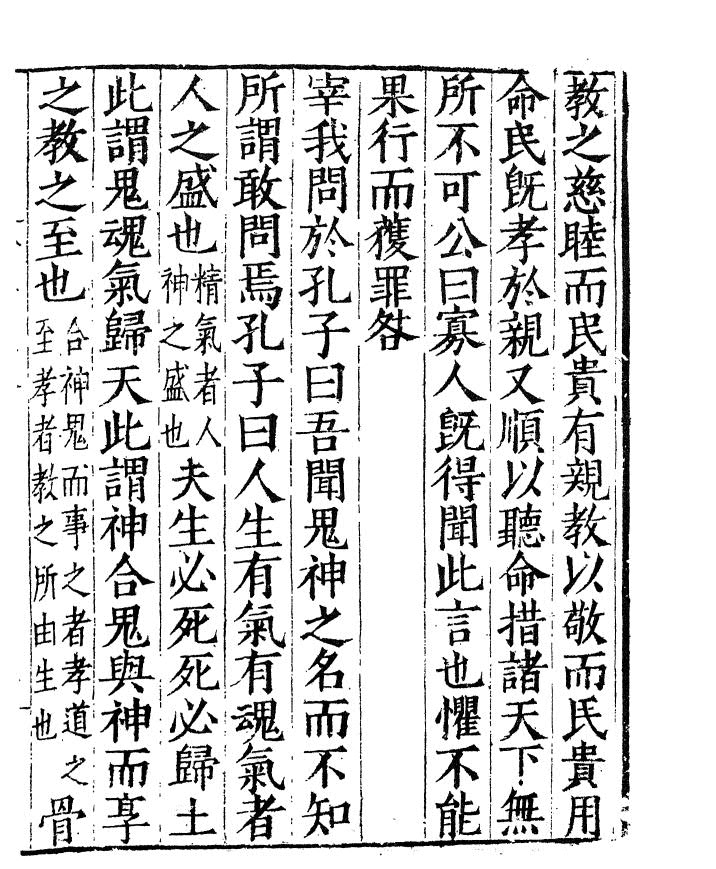 教之慈睦而民貴有親教以敬而民貴用
命民旣孝於親又順以聽命措諸天下無
所不可公曰寡人旣得聞此言也懼不能
果行而獲罪咎
宰我問於孔子曰吾聞鬼神之名而不知
所謂敢問焉孔子曰人生有氣有魂氣者
人之盛也精氣者人神之盛也夫生必死死必歸土
此謂鬼魂氣歸天此謂神合鬼與神而享
之教之至也合神鬼而事之者孝道之至孝者教之所由生也骨